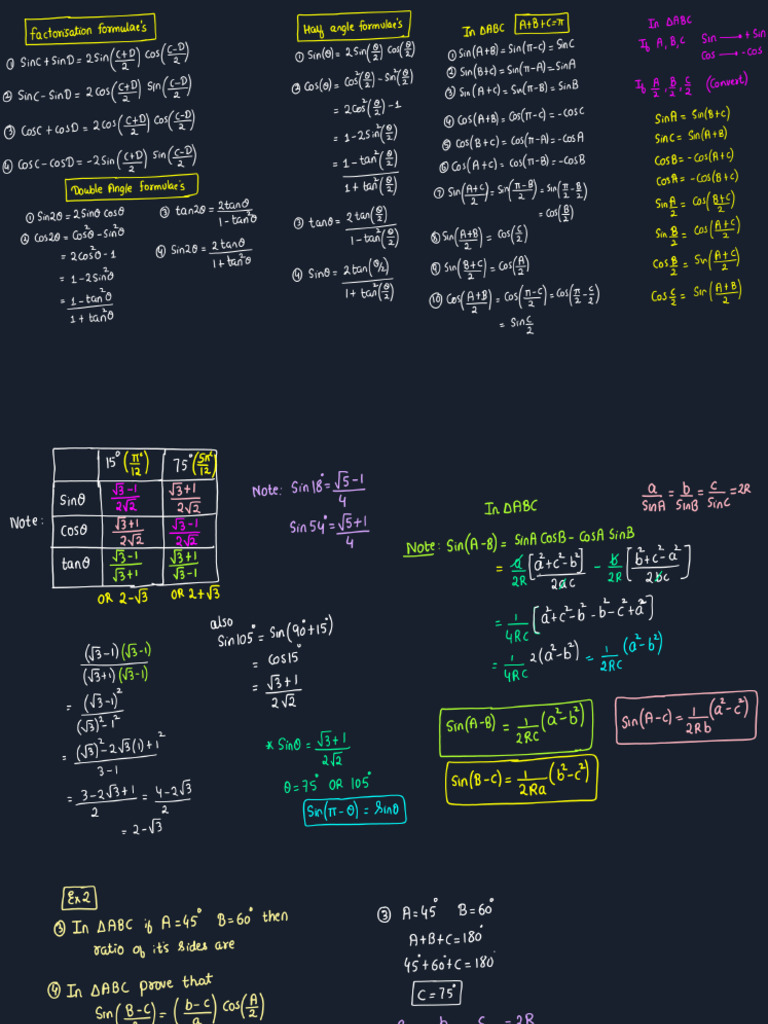 Factorisation formulae's
① SinC + SinD = 2Sin((C+D)/2) Cos((C-D)/2)
② SinC - SinD = 2Cos((C+D)/2) Sin((C-D)/2)
③ CosC + CosD = 2Cos((C+D)/2) Cos((C-D)/2)
④ CosC - CosD = -2Sin((C+D)/2) Sin((C-D)/2)
Double Angle formulae's
① Sin2θ = 2Sinθ Cosθ
② Cos2θ = Cos²θ - Sin²θ
= 2Cos²θ - 1
= 1 - 2Sin²θ
= (1 - tan²θ)/(1 + tan²θ)
③ tan2θ = 2tanθ/(1 - tan²θ)
④ Sin2θ = 2tanθ/(1 + tan²θ)
Half angle formulae's
① Sin(θ) = 2Sin(θ/2) Cos(θ/2)
② Cos(θ) = Cos²(θ/2) - Sin²(θ/2)
= 2Cos²(θ/2) - 1
= 1 - 2Sin²(θ/2)
= (1 - tan²(θ/2))/(1 + tan²(θ/2))
③ tanθ = 2tan(θ/2)/(1 - tan²(θ/2))
④ Sinθ = 2tan(θ/2)/(1 + tan²(θ/2))
In ΔABC A+B+C=π
① Sin(A+B) = Sin(π-C) = SinC
② Sin(B+C) = Sin(π-A) = SinA
③ Sin(A+C) = Sin(π-B) = SinB
④ Cos(A+B) = Cos(π-C) = -CosC
⑤ Cos(B+C) = Cos(π-A) = -CosA
⑥ Cos(A+C) = Cos(π-B) = -CosB
⑦ Sin((A+C)/2) = Sin((π-B)/2) = Sin(π/2 - B/2)
= Cos(B/2)
⑧ Sin((A+B)/2) = Cos(C/2)
⑨ Sin((B+C)/2) = Cos(A/2)
⑩ Cos((A+B)/2) = Cos((π-C)/2) = Cos(π/2 - C/2)
= Sin C/2
In ΔABC
If A, B, C Sin → + Sin
Cos → - Cos
If A/2, B/2, C/2 (Convert)
SinA = Sin(B+C)
SinC = Sin(A+B)
CosB = -Cos(A+C)
CosA = -Cos(B+C)
Sin A/2 = Cos((B+C)/2)
Sin B/2 = Cos((A+C)/2)
Cos B/2 = Sin((A+C)/2)
Cos C/2 = Sin((A+B)/2)
Note:
15° (π^c/12) 75° (5π^c/12)
Sinθ (√3-1)/(2√2) (√3+1)/(2√2)
Cosθ (√3+1)/(2√2) (√3-1)/(2√2)
tanθ (√3-1)/(√3+1) (√3+1)/(√3-1)
OR 2-√3 OR 2+√3
Note: Sin18° = (√5-1)/4
Sin54° = (√5+1)/4
(√3-1)(√3-1)/((√3+1)(√3-1))
= (√3-1)²/((√3)²-1²)
= ((√3)² - 2√3(1) + 1²)/(3-1)
= (3-2√3+1)/2 = (4-2√3)/2
= 2-√3
also
Sin105° = Sin(90°+15°)
= Cos15°
= (√3+1)/(2√2)
* Sinθ = (√3+1)/(2√2)
θ = 75° OR 105°
Sin(π-θ) = Sinθ
In ΔABC
a/SinA = b/SinB = c/SinC = 2R
Note: Sin(A-B) = SinA CosB - CosA SinB
= a/2R [(a²+c²-b²)/2ac] - b/2R [(b²+c²-a²)/2bc]
= 1/4Rc [a²+c²-b²-b²-c²+a²]
= 1/4Rc 2(a²-b²) = 1/2Rc (a²-b²)
Sin(A-B) = 1/2Rc (a²-b²)
Sin(A-C) = 1/2Rb (a²-c²)
Sin(B-C) = 1/2Ra (b²-c²)
Ex 2
③ In ΔABC if A=45° B=60° then
ratio of it's sides are
④ In ΔABC prove that
Sin(B-C) = (b-c/a) Cos(A/2)
③ A=45° B=60°
A+B+C=180°
45°+60°+C=180°
C=75°
= 2R